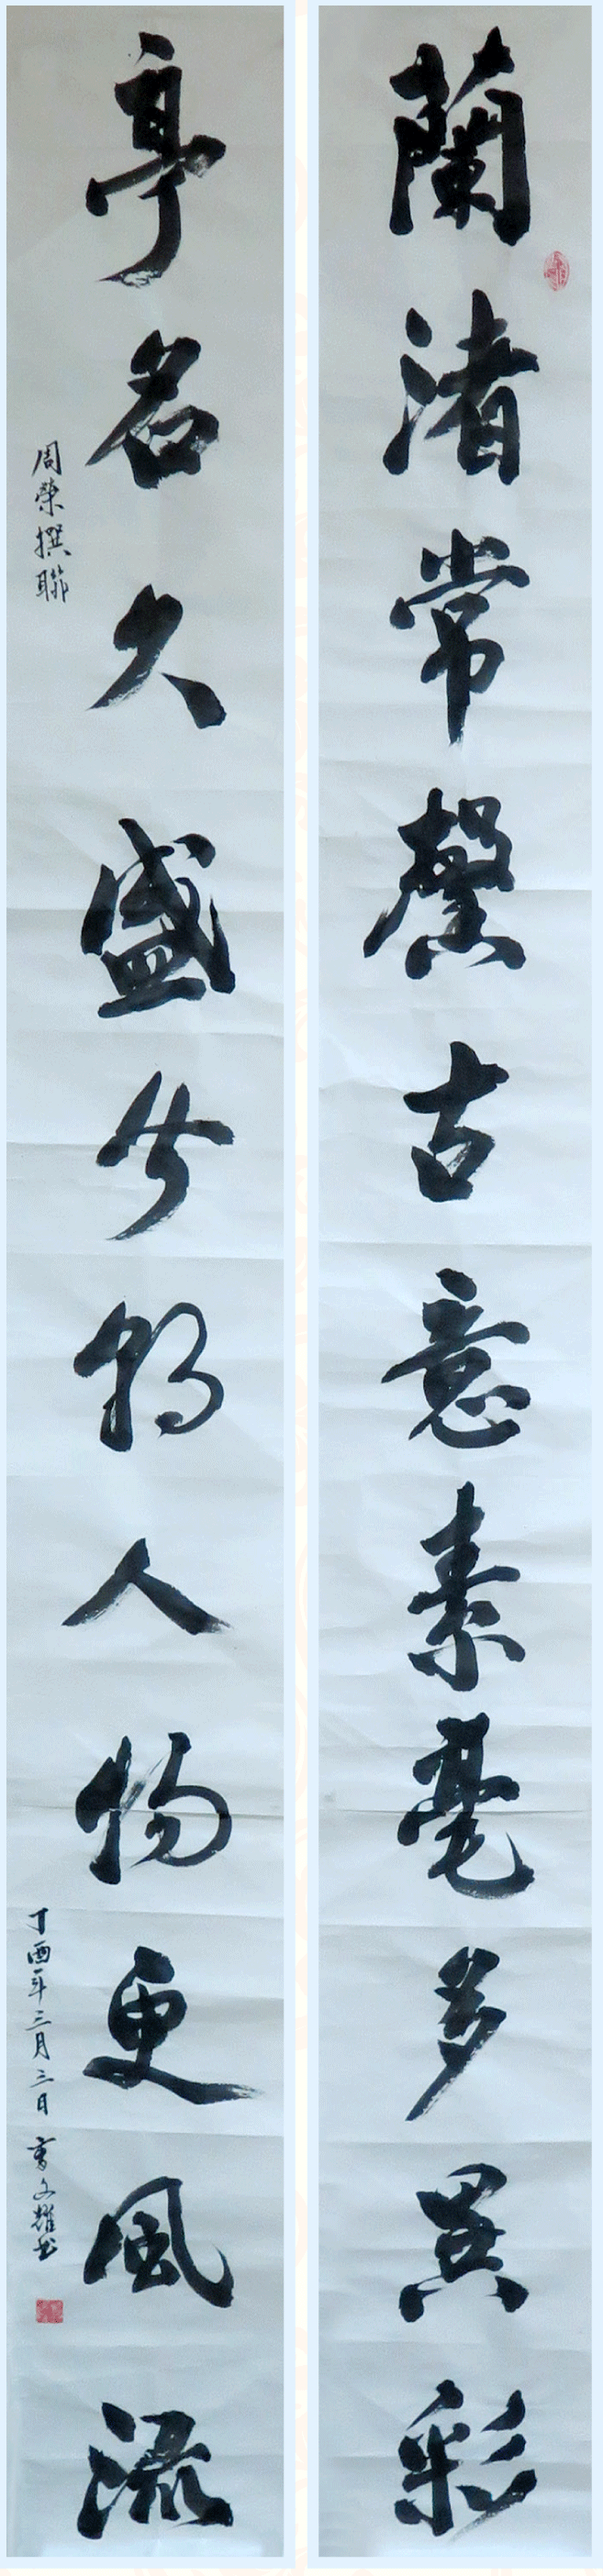 蘭渚常馨古意素毫多異彩
亭名久盛今朝人物更風流
周榮撰聯
丁酉年三月三日 曹文耀书